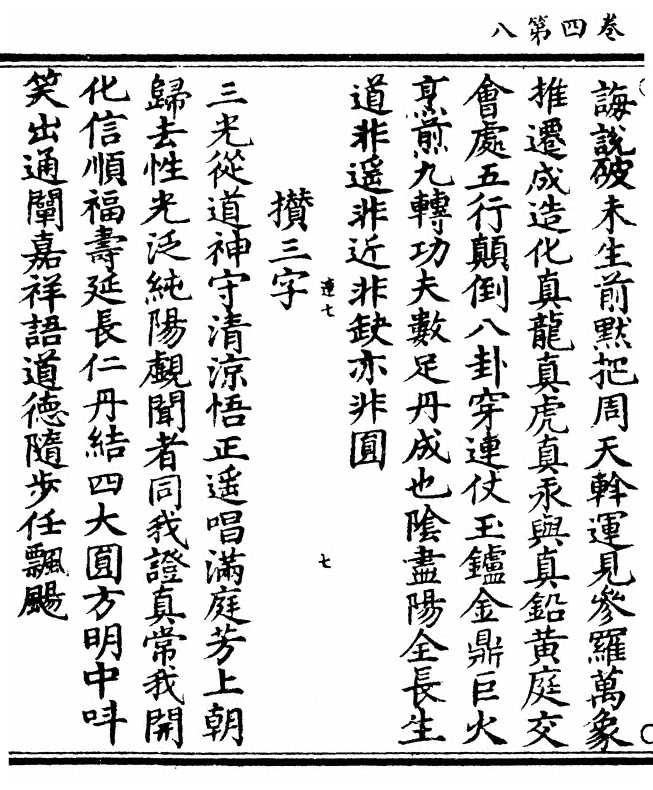 卷四第八
誨說破未生前默把周天斡運見參羅萬象
推遷成造化真龍真虎真汞與真鉛黃庭交
會處五行顛倒八卦穿連仗玉鑪金鼎巨火
烹煎九轉功夫數足丹成也陰盡陽全長生
道非遥非近非缺亦非圓
連七
七
攅三字
三光從道神守清涼悟正遥唱滿庭芳上朝
歸去性光泛純陽覰聞者同我證真常我開
化信順福壽延長仁丹結四大圓方明中呌
笑出通闡嘉祥語道德隨步任飄颺